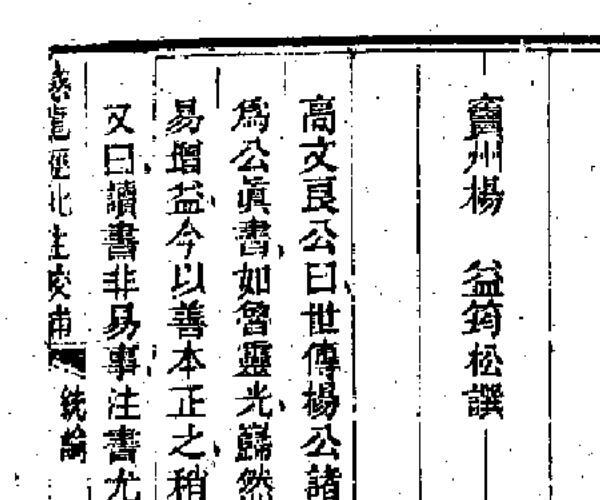 竇州楊 益筠松譔
高文良公曰世傳楊公諸
爲公眞書如魯靈光巋然
易增益今以善本正之稍
又曰讀書非易事注書尤
撼龍經批注校補 統論